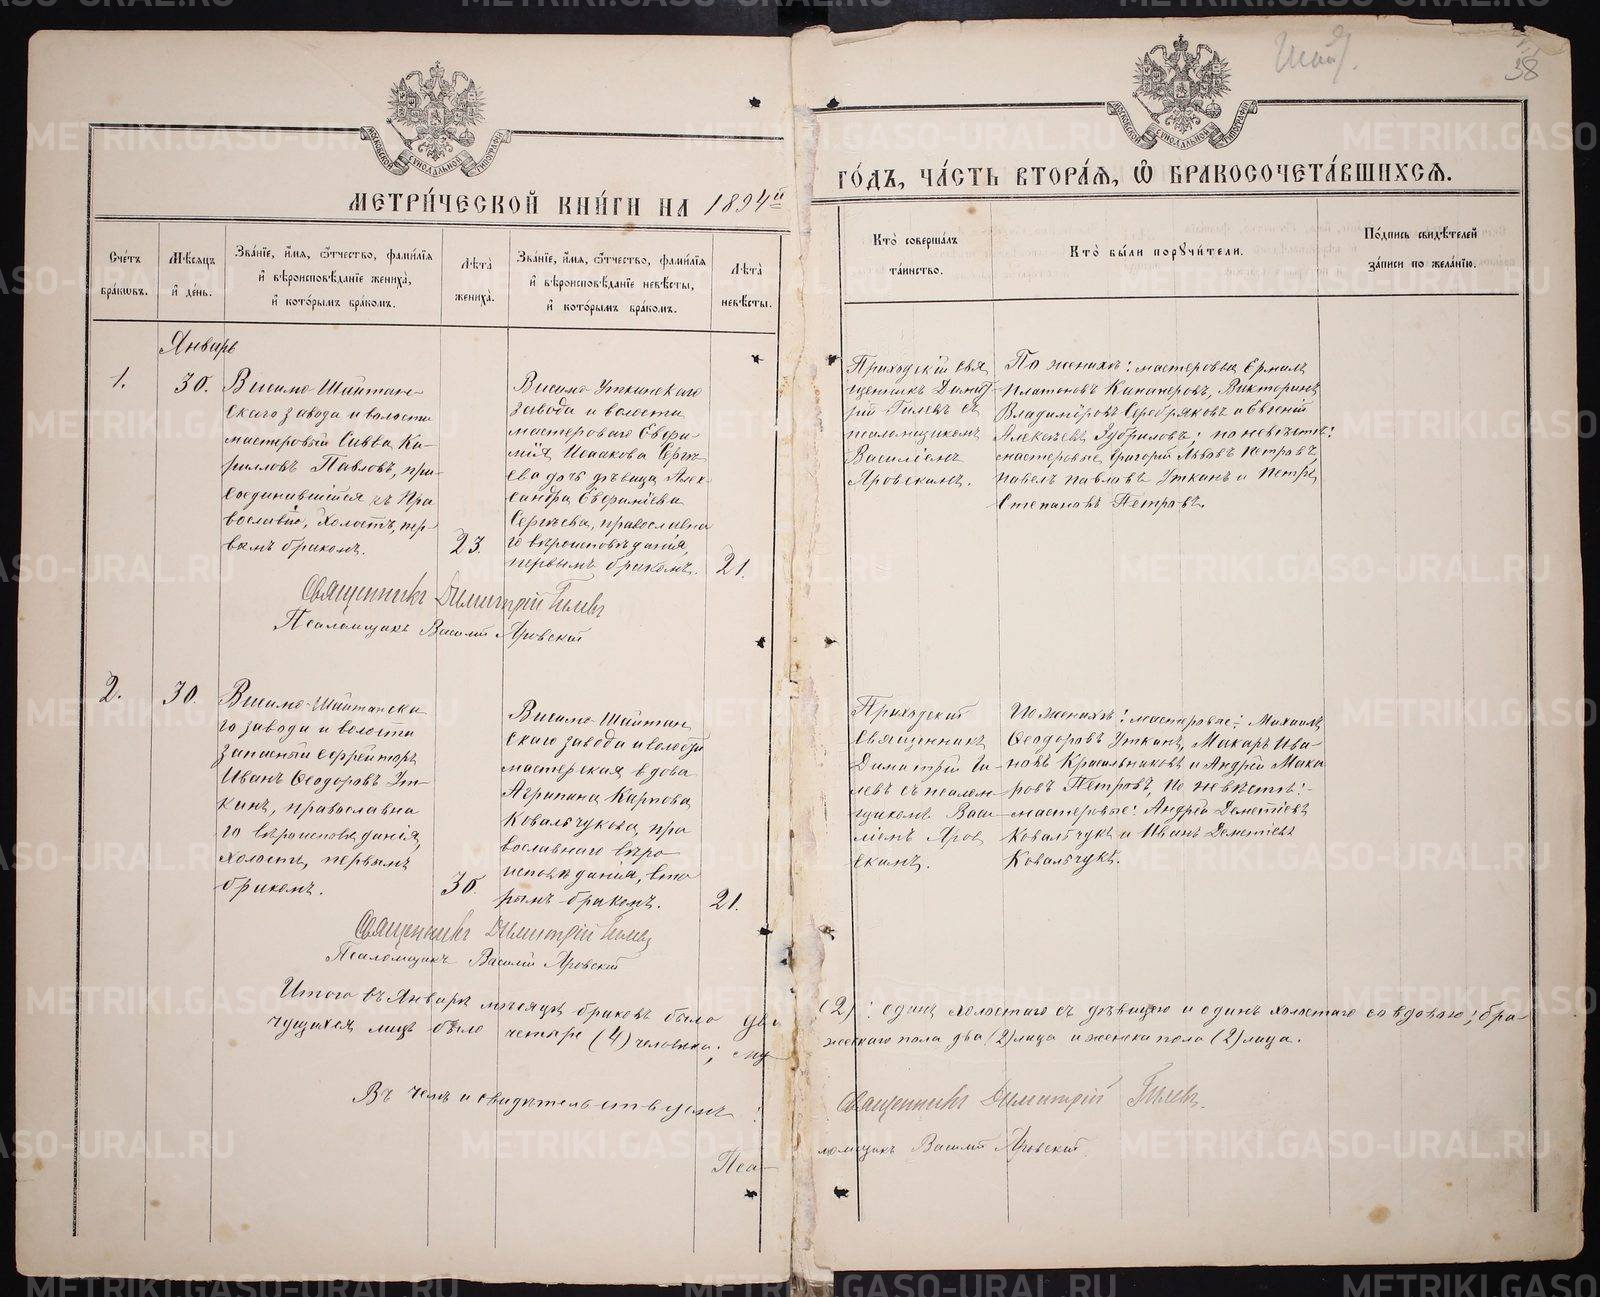 Шай
38
МОСКОВСКОЙ СѴНОДАЛЬНОЙ ТИПОГРАФІИ
МОСКОВСКОЙ СѴНОДАЛЬНОЙ ТИПОГРАФІИ
МЕТРИ́ЧЕСКОЙ КНИ́ГИ НА 1894й
ГО́ДЪ, ЧА́СТЬ ВТОРА́Я, Ѡ БРАКОСОЧЕТА́ВШИХСЯ.
Сче́тъ
бра́кѡвъ.
Мѣ́сяцъ
и де́нь.
Зва́нїе, и́мя, ѻ́тчество, фами́лїя
и вѣроисповѣ́данїе жениха̀,
и кото́рымъ бра́комъ.
Лѣ́та
жениха̀.
Зва́нїе, и́мя, ѻ́тчество, фами́лїя
и вѣроисповѣ́данїе невѣ́сты,
и кото́рымъ бра́комъ.
Лѣ́та
невѣ́сты.
Кто̀ соверша́лъ
та́инство.
Кто̀ бы́ли порꙋчи́тели.
По́дпись свидѣ́телей
за́писи по жела́нїю.
Январь
1.
30.
Висимо-Шайтан-
скаго завода и волости
мастеровый Савва Ки-
рилловъ Павловъ, при-
соединившійся къ Пра
вославію, холостъ, пер-
вымъ бракомъ.
23.
Висимо-Уткинскаго
завода и волости
мастероваго Евфи-
мія Исаакова Сергѣ-
ева дочь дѣвица Алек-
сандра Евфиміева
Сергѣева, православна
го вѣроисповѣданія,
первымъ бракомъ.
21.
Приходскій Свя
щенникъ Димит
рій Гилевъ съ
псаломщикомъ
Василіемъ
Яровскимъ.
По женихѣ: мастеровые Ермилъ
Платоновъ Канонеровъ, Викторинъ
Владиміровъ Серебряковъ и Евгеній
Алексѣевъ Зубриловъ; по невѣстѣ:
мастеровые Григорій Львовъ Петровъ,
Павелъ Павловъ Уткинъ и Петръ
Степановъ Петровъ.
Священникъ Димитрій Гилевъ
Псаломщикъ Василій Яровскій
2.
30.
Висимо-Шайтанска
го завода и волости
запасный Ефрейторъ
Иванъ Ѳеодоровъ Ут-
кинъ, православна
го вѣроисповѣданія,
холостъ, первымъ
бракомъ.
30.
Висимо-Шайтан
скаго завода и волости
мастерская вдова
Агрипина Карпова
Ковальчукова, пра
вославнаго вѣро
исповѣданія, вто
рымъ бракомъ.
21.
Приходскій
Священникъ
Димитрій Ги-
левъ съ псалом
щикомъ Васи-
ліемъ Яров
скимъ.
По женихѣ: мастеровые: Михаилъ
Ѳеодоровъ Уткинъ, Макаръ Ива-
новъ Красильниковъ и Андрей Мака
ровъ Петровъ, По невѣстѣ:
мастеровые: Андрей Дементіевъ
Ковальчукъ и Иванъ Дементіевъ
Ковальчукъ.
Священникъ Димитрій Гилевъ
Псаломщикъ Василій Яровскій
Итого въ Январѣ мѣсяцѣ браковъ было два (2): одинъ холостаго съ дѣвицею и одинъ холостаго со вдовою; бра-
чущихся лицъ было четыре (4) человѣка; му жескаго пола два (2) лица и женска пола (2) лица.
Въ чемъ и свидѣтельствуемъ: Священникъ Димитрій Гилевъ.
Псаломщикъ Василій Яровскій
METRIKI.GASO-URAL.RU